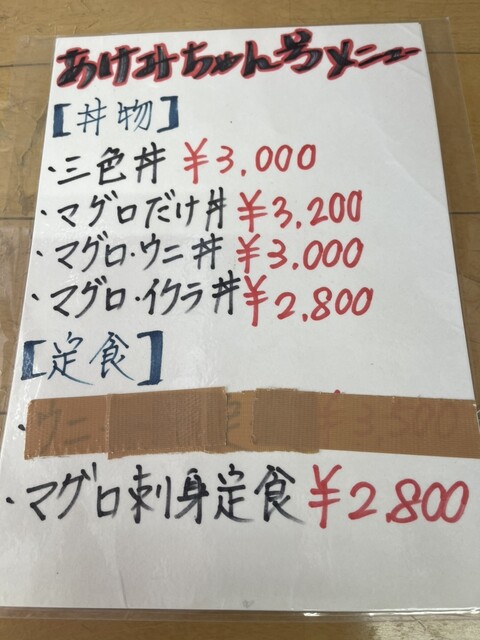 あけみちゃん号メニュー
[丼物]
・三色丼 ¥3,000
・マグロだけ丼 ¥3,200
・マグロ・ウニ丼 ¥3,000
・マグロ・イクラ丼 ¥2,800
[定食]
・ウニ ¥3,500
・マグロ刺身定食 ¥2,800